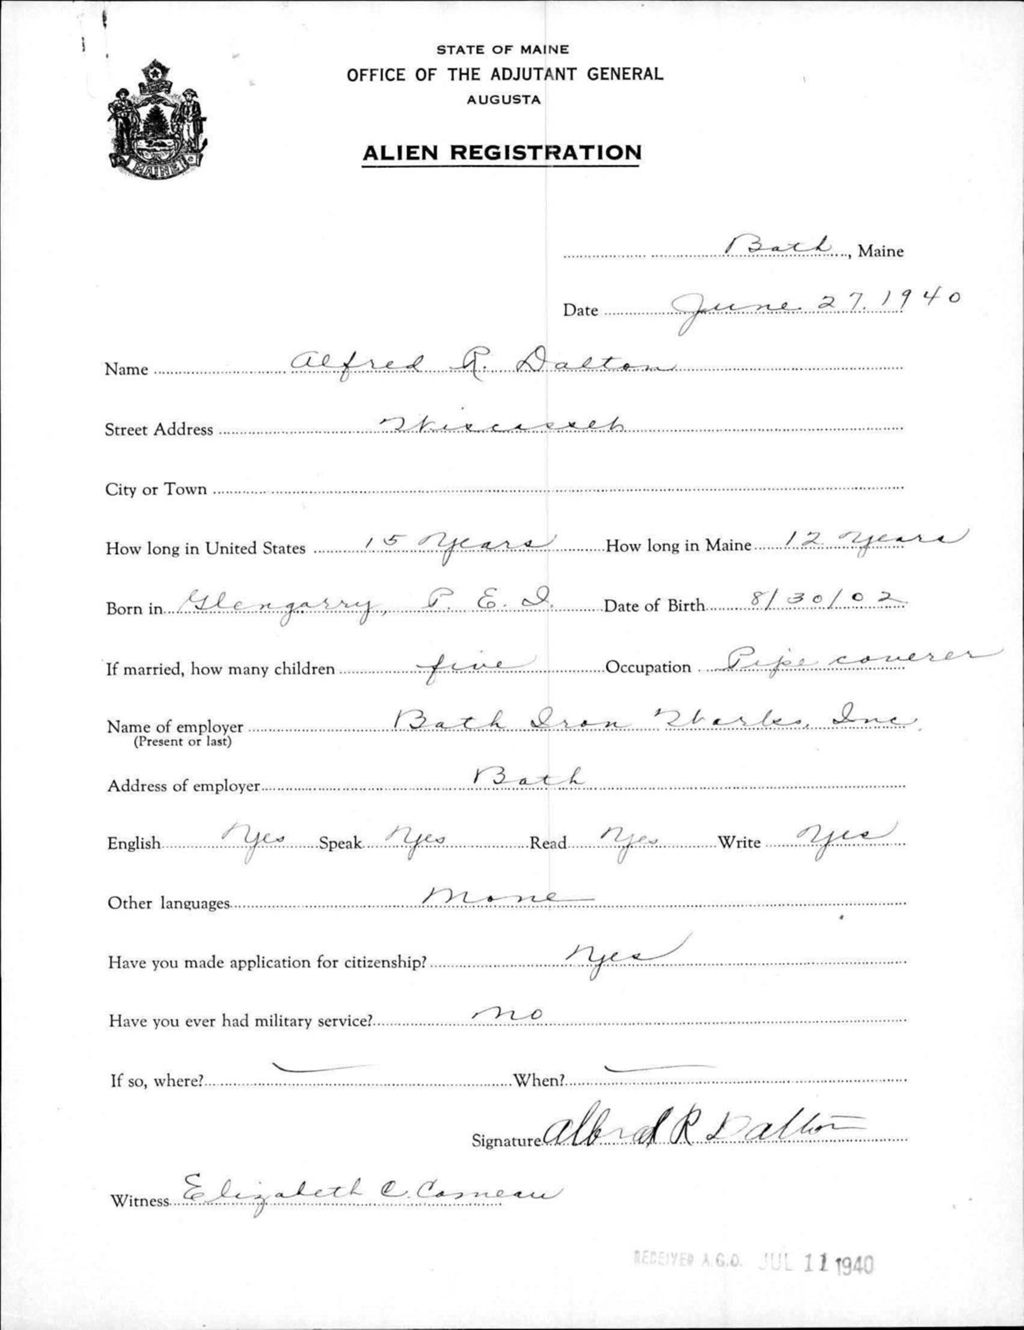 STATE OF MAINE
OFFICE OF THE ADJUTANT GENERAL
AUGUSTA
ALIEN REGISTRATION
MAINE
Bath, Maine
Date June 27, 1940
Name Alfred R. Dalton
Street Address Wiscasset
City or Town
How long in United States 15 years How long in Maine 12 years
Born in Glengarry, P. E. I. Date of Birth 8/30/02
If married, how many children five Occupation Pipe coverer
Name of employer Bath Iron Works, Inc.
(Present or last)
Address of employer Bath
English Yes Speak Yes Read Yes Write Yes
Other languages None
Have you made application for citizenship? Yes
Have you ever had military service? No
If so, where? When?
Signature Alfred R Dalton
Witness Elizabeth C. Comeau
RECEIVED A.G.O. JUL 11 1940